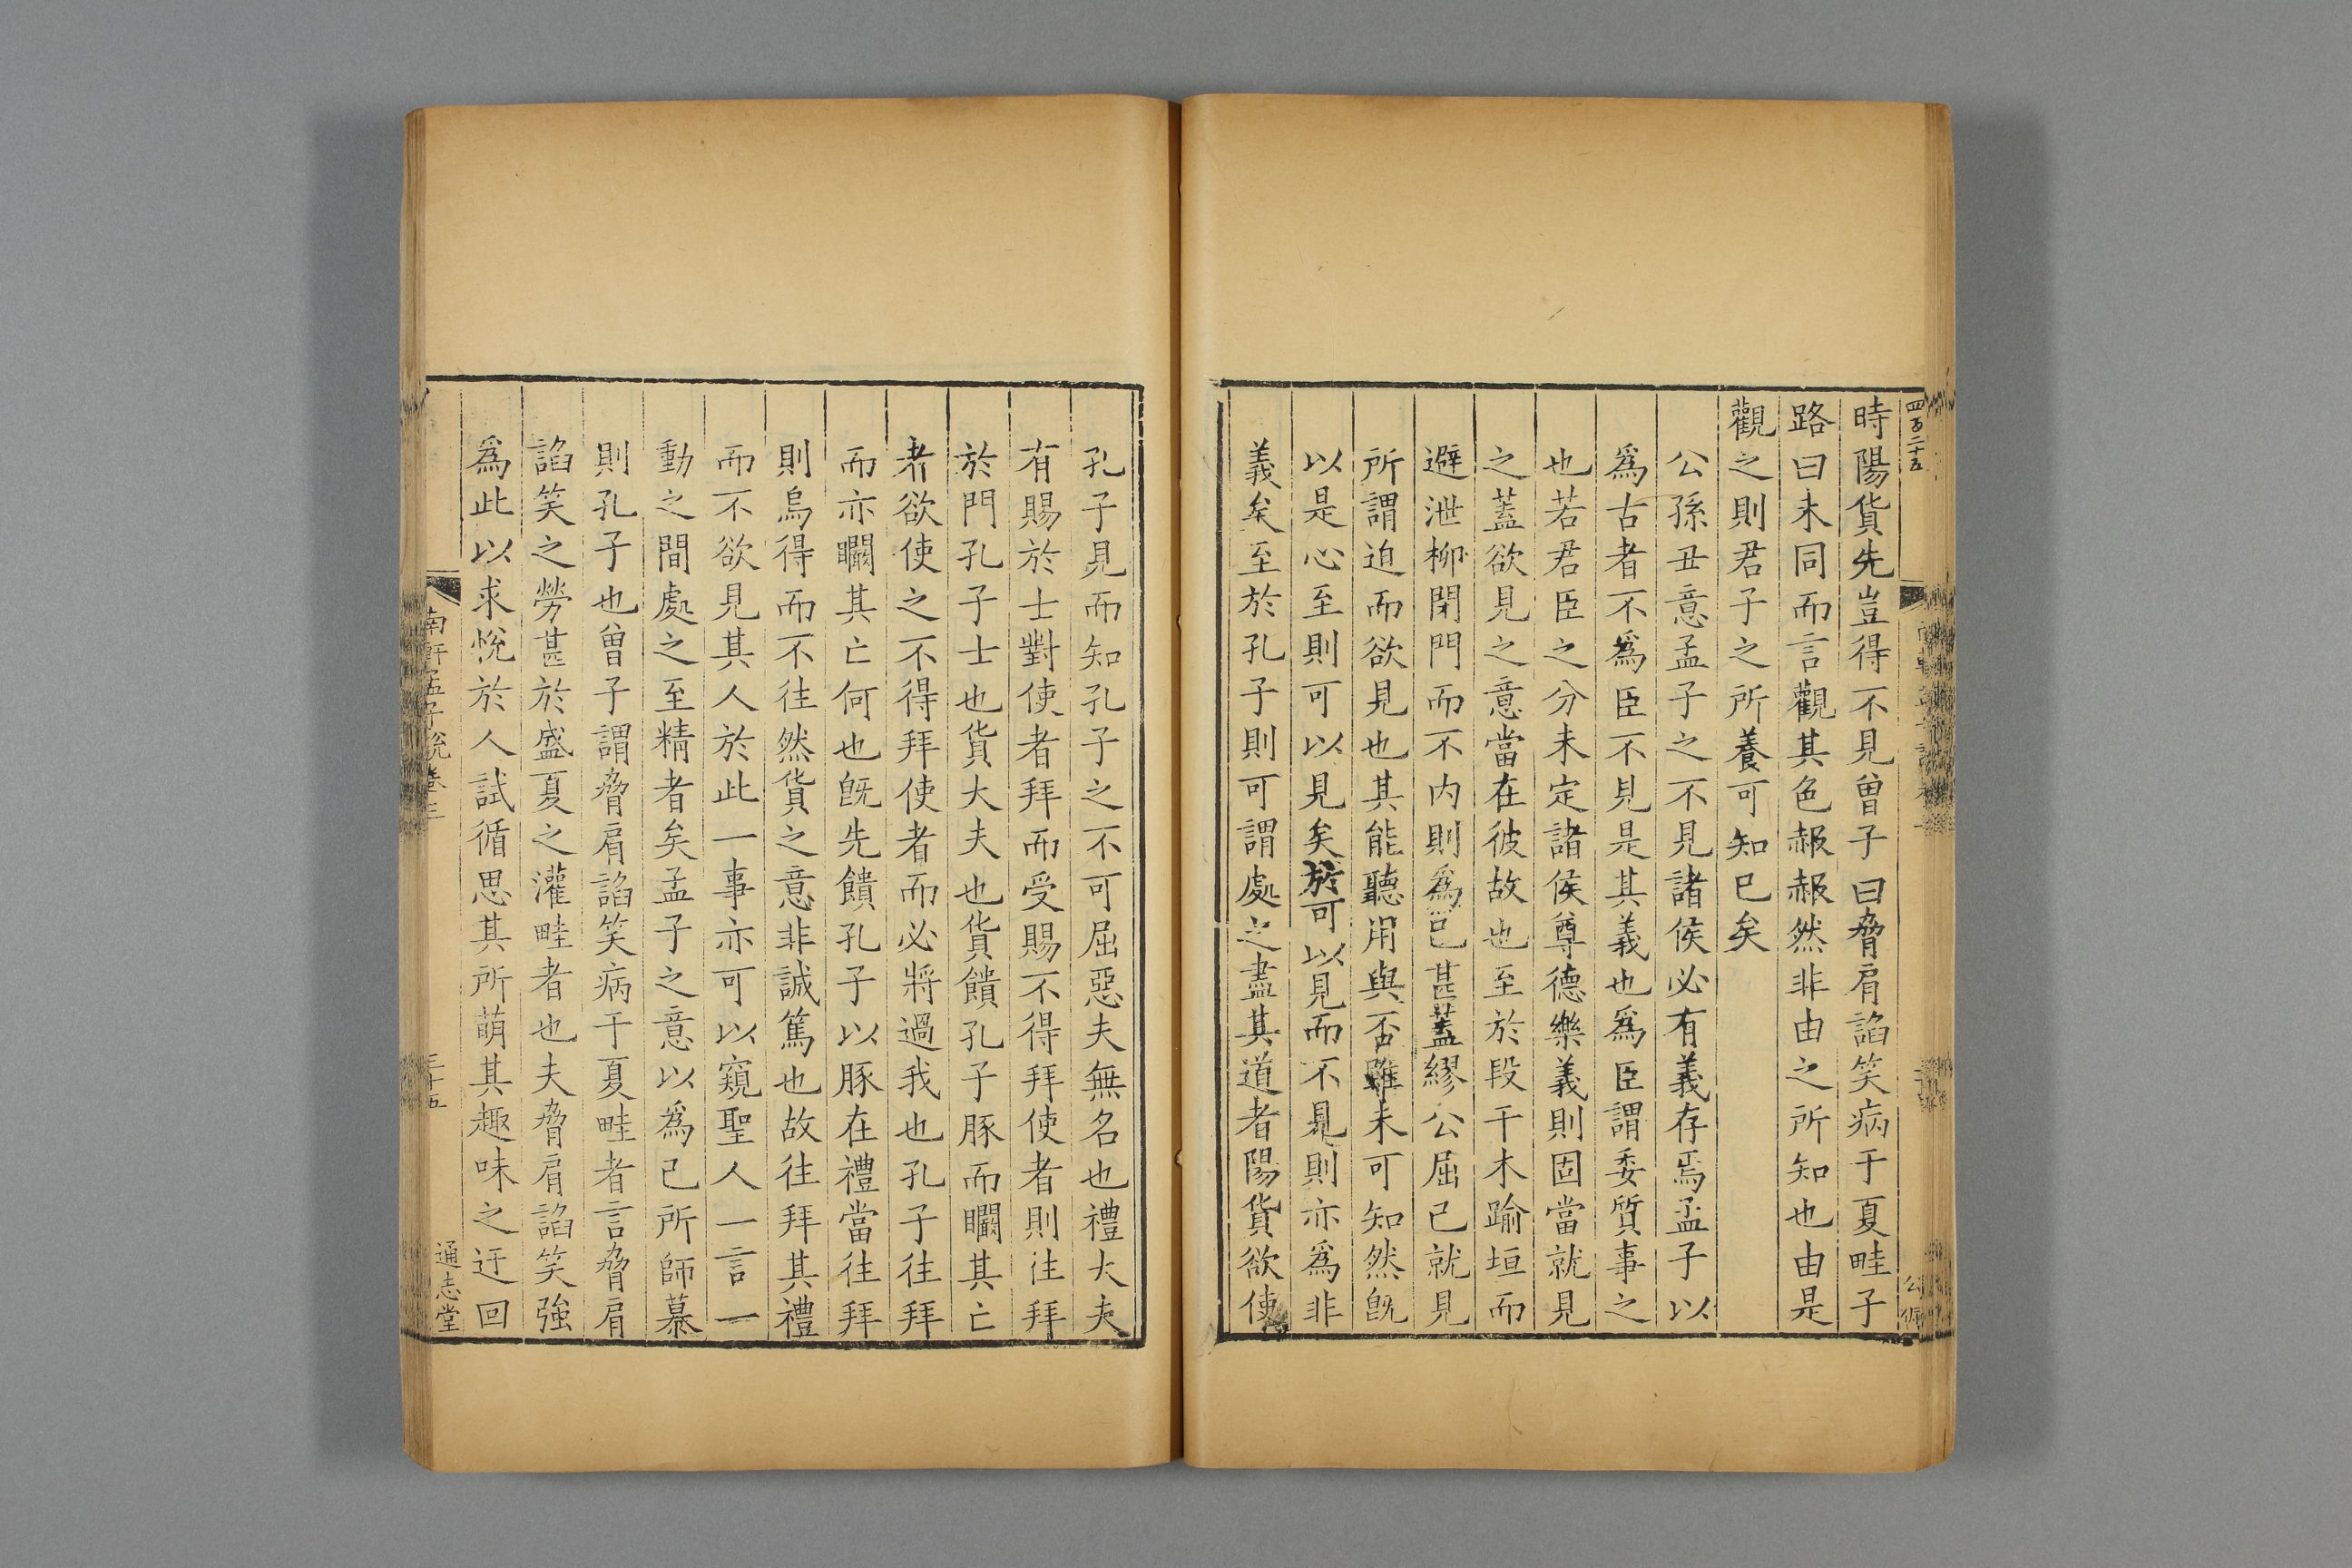 四百二十五
時陽貨先豈得不見曾子曰脅肩諂笑病于夏畦子
路曰未同而言觀其色赧赧然非由之所知也由是
觀之則君子之所養可知已矣
公孫丑意孟子之不見諸侯必有義存焉孟子以
爲古者不爲臣不見是其義也爲臣謂委質事之
也若君臣之分未定諸侯尊德樂義則固當就見
之蓋欲見之意當在彼故也至於段干木踰垣而
避泄柳閉門而不内則爲已甚蓋繆公屈已就見
所謂迫而欲見也其能聽用與否雖未可知然旣
以是心至則可以見矣於可以見而不見則亦爲非
義矣至於孔子則可謂處之盡其道者陽貨欲使
孔子見而知孔子之不可屈惡夫無名也禮大夫
有賜於士對使者拜而受賜不得拜使者則往拜
於門孔子士也貨大夫也貨饋孔子豚而矙其亡
者欲使之不得拜使者而必將過我也孔子往拜
而亦矙其亡何也旣先饋孔子以豚在禮當往拜
則烏得而不往然貨之意非誠篤也故往拜其禮
而不欲見其人於此一事亦可以窺聖人一言一
動之間處之至精者矣孟子之意以爲已所師慕
則孔子也曾子謂脅肩諂笑病于夏畦者言脅肩
諂笑之勞甚於盛夏之灌畦者也夫脅肩諂笑強
爲此以求悅於人試循思其所萌其趣味之迂回
南軒孟子說卷三
三十五
通志堂